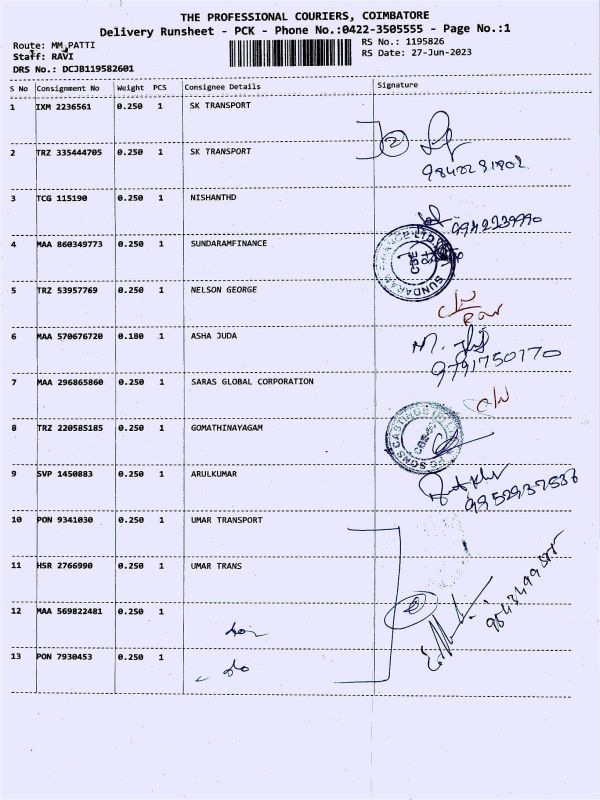 THE PROFESSIONAL COURIERS, COIMBATORE
Delivery Runsheet - PCK - Phone No.:0422-3505555 - Page No.:1
Route: MM_PATTI
RS No.: 1195826
Staff: RAVI
RS Date: 27-Jun-2023
DRS No.: DCJB119582601
S No Consignment No Weight PCS Consignee Details Signature
1 IXM 2236561 0.250 1 SK TRANSPORT
2
2 TRZ 335444705 0.250 1 SK TRANSPORT
3 TCG 115190 0.250 1 NISHANTHD
4 MAA 860349773 0.250 1 SUNDARAMFINANCE
5 TRZ 53957769 0.250 1 NELSON GEORGE
6 MAA 570676720 0.180 1 ASHA JUDA
9791750770
7 MAA 296865860 0.250 1 SARAS GLOBAL CORPORATION
8 TRZ 220585185 0.250 1 GOMATHINAYAGAM
9 SVP 1450883 0.250 1 ARULKUMAR
9952937536
10 PON 9341030 0.250 1 UMAR TRANSPORT
11 HSR 2766990 0.250 1 UMAR TRANS
12 MAA 569822481 0.250 1
13 PON 7930453 0.250 1